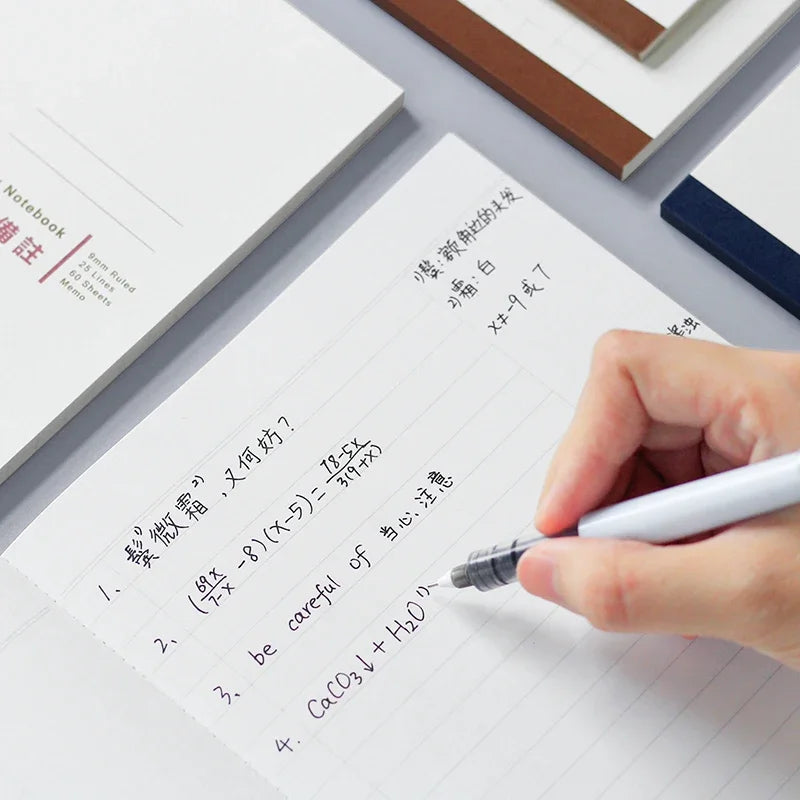 Notebook
備註
9mm Ruled
25 Lines
60 Sheets
Memo
1)鬓:额角边的头发
2)霜:白
x≠-9或7
1、鬓¹⁾微霜²⁾,又何妨?
2、(69x/7-x -8)(x-5)=78-5x/3(9+x)
3、be careful of 当心,注意
4. CaCO₃↓+H₂O¹⁾